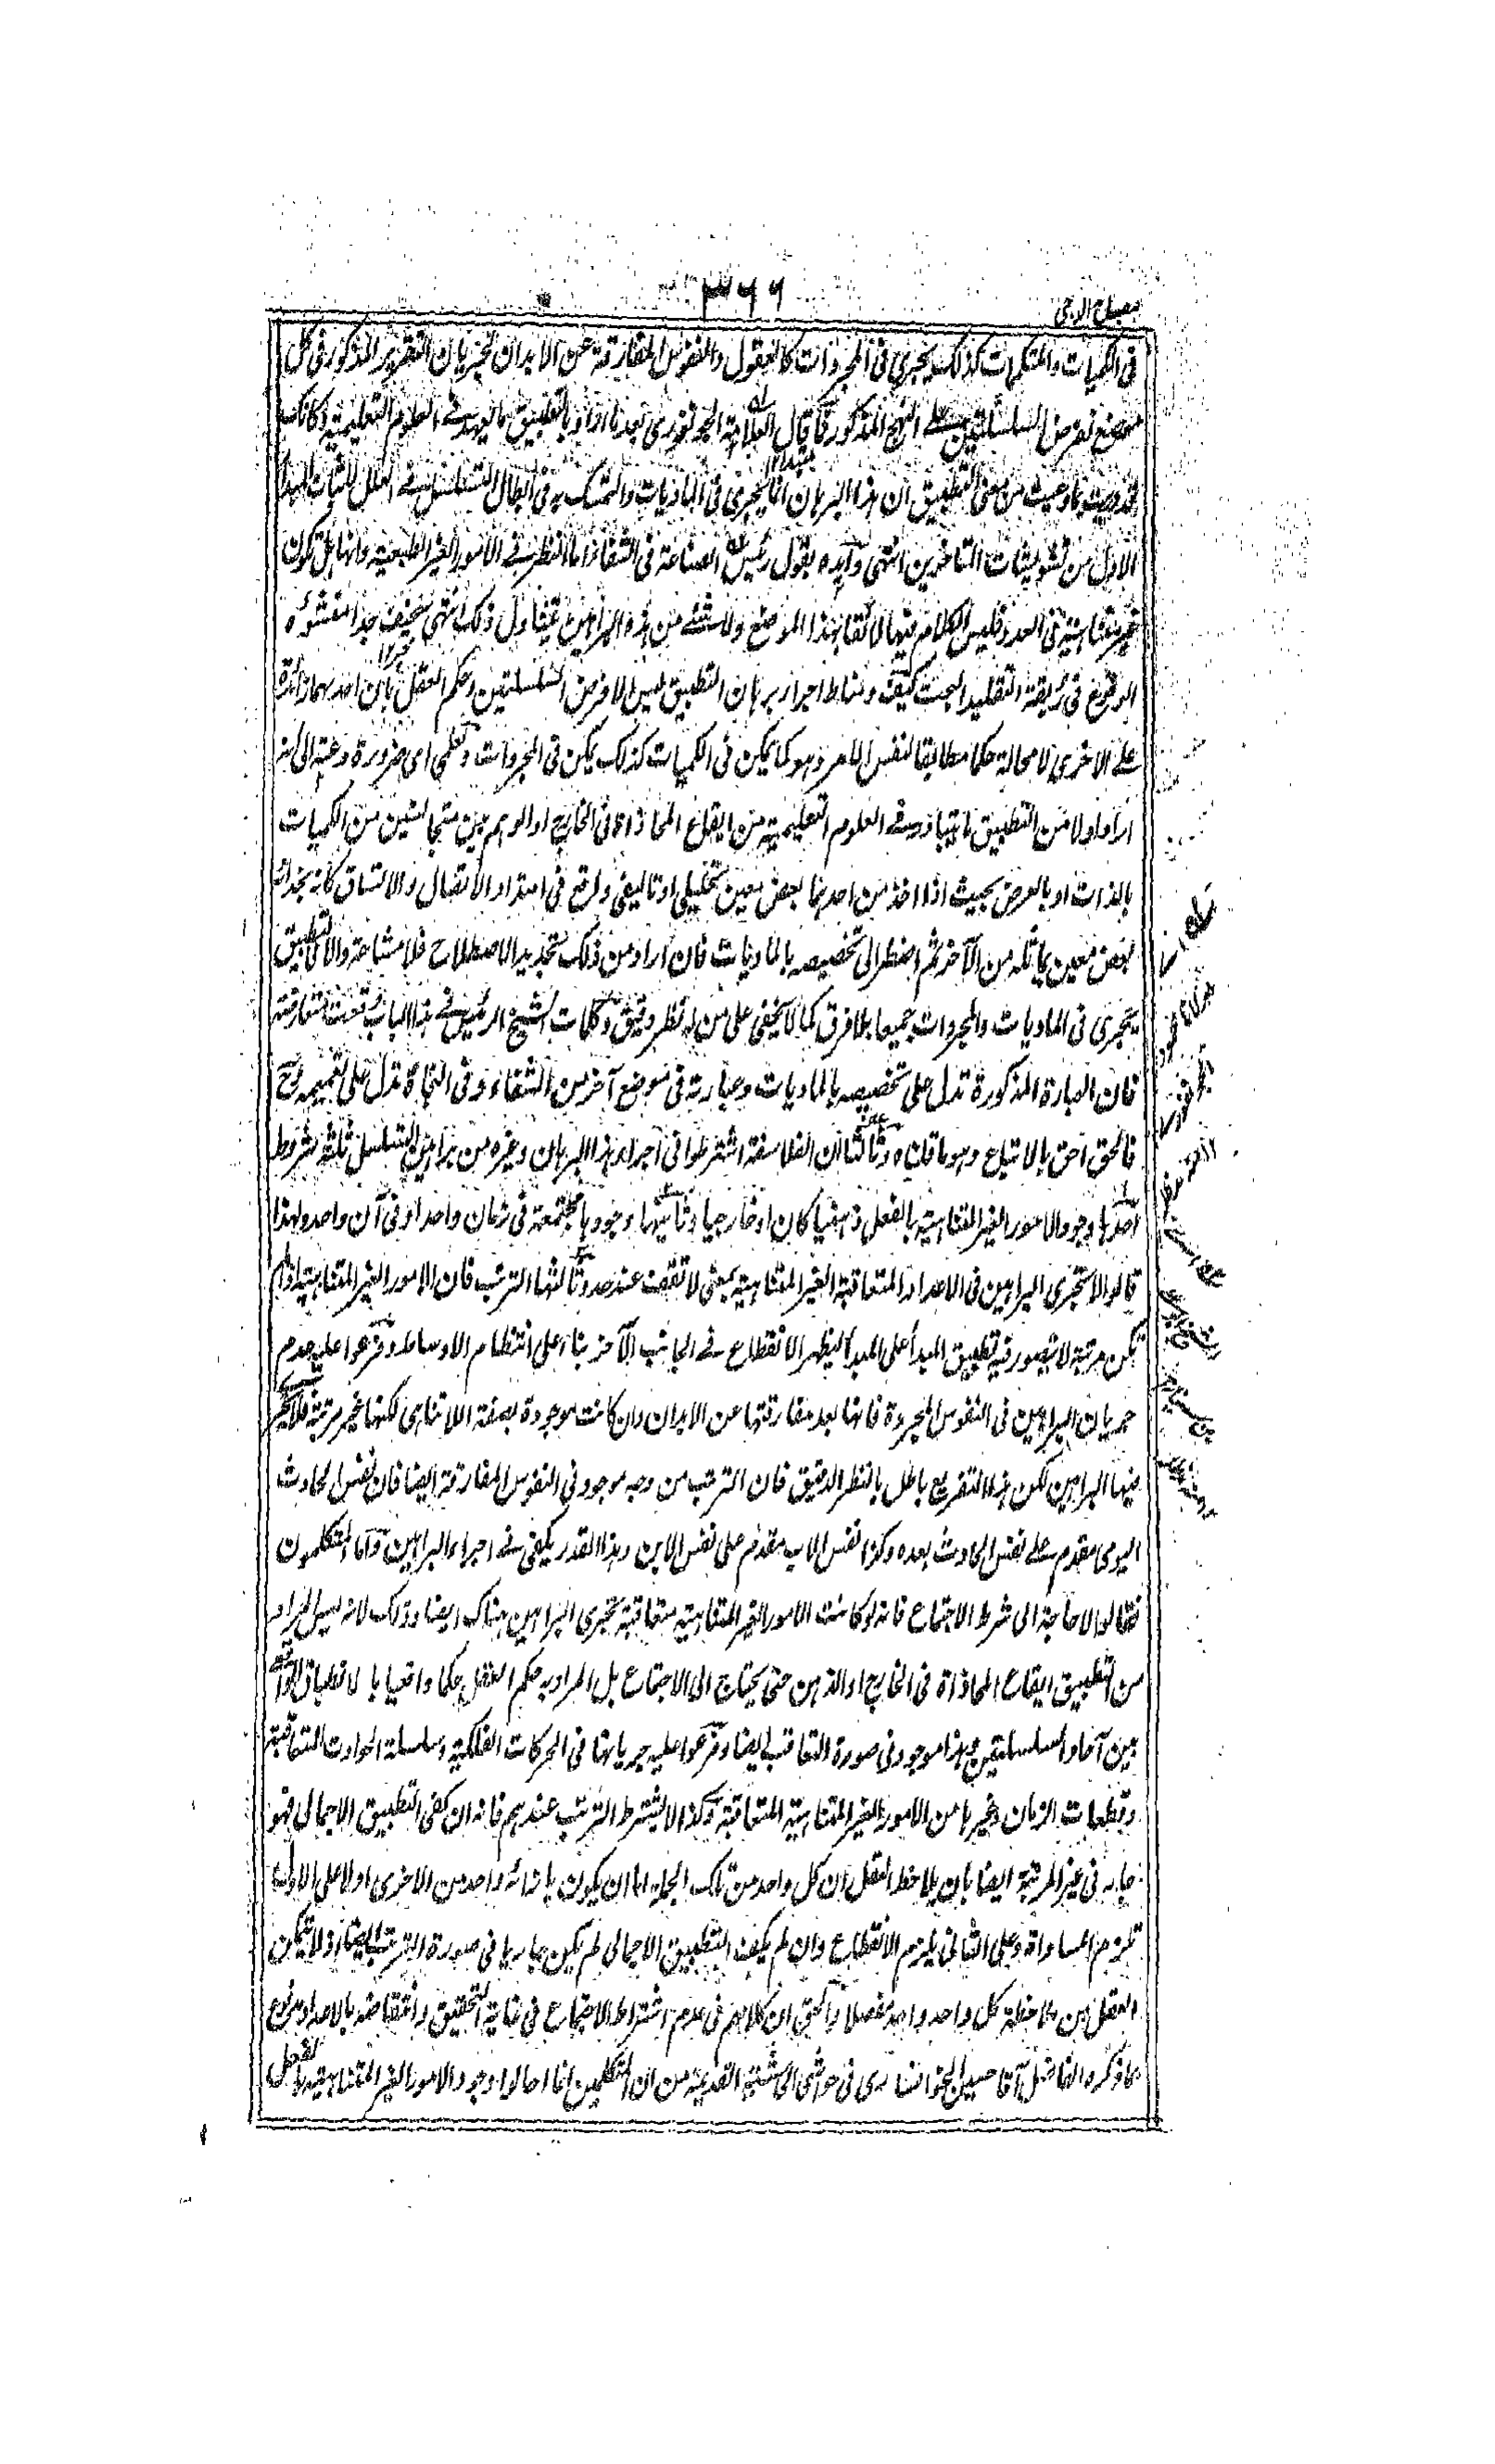 ٣٦٦
مصباح الدجى
فى الكميات والمتكممات كذلك يجرى فى المجردات كالعقول والنفوس المفارقة عن الابدان لجريان التقرير المذكور فى كل
موضع نفرض السلسلتين على النهج المذكور فما قال العلامة الجونفورى بعدما اراد بالتطبيق ما يعهد فى العلوم التعليمية وكانك
قد دريت بما وعيت من معنى التطبيق ان هذا البرهان انما يجرى فى الماديات والتمسك به فى ابطال التسلسل فى العلل لاثبات المبدأ
الاول من تشويشات المتاخرين انتهى وأيده بقول رئيس الصناعة فى الشفاء اما النظر فى الامور الغير الطبيعية وانها هل تكون
غير متناهية فى العدد فليس الكلام فيها لائقا بهذا الموضع ولا شئ من هذه البراهين يتناول ذلك انتهى سخيف جدا منشؤه
الوقوع فى ربقة التقليد البحت كيف ومناط اجراء برهان التطبيق ليس الا فرض السلسلتين وحكم العقل بان احدهما زائدة
على الاخرى لا محالة حكما مطابقا لنفس الامر وهو كما يمكن فى الكميات كذلك يمكن فى المجردات ولعلمى اى ضرورة دعته الى انه
اراد اولا من التطبيق ما يتبادر فى العلوم التعليمية من ايقاع المحاذاة فى الخارج او الوهم بين متجانسين من الكميات
بالذات او بالعرض بحيث اذا اخذ من احدهما بعض معين تحليلى او تاليفى ولرقع فى امتداد الاتصال والاتساق كانه بحذائه
بعض معين يماثله من الآخر ثم اضطر الى تخصيصه بالماديات فان اراد من ذلك تجديد الاصطلاح فلا مشاحة والا فالتطبيق
يجرى فى الماديات والمجردات جميعا بلا فرق كما لا يخفى على من له نظر دقيق وكلمات الشيخ الرئيس فى هذا الباب وقعت متعارضة
فان العبارة المذكورة تدل على تخصيصه بالماديات وعبارته فى موضع آخر من الشفاء وفى النجاة تدل على تعميمه وح
فالحق احق بالاتباع وهو ما قلناه وثالثا ان الفلاسفة اشترطوا فى اجراء هذا البرهان وغيره من براهين التسلسل ثلثة شروط
احدها وجود الامور الغير المتناهية بالفعل ذهنيا كان او خارجيا وثانيها وجودها مجتمعة فى زمان واحد او فى آن واحد ولهذا
قالوا لا تجرى البراهين فى الاعداد المتعاقبة الغير المتناهية بمعنى لا تقف عند حد وثالثها الترتب فان الامور الغير المتناهية اذا لم
تكن مرتبة لا يتصور فيه تطبيق المبدأ على المبدأ ليظهر الانقطاع فى الجانب الآخر بناء على انتظام الاوساط وفرعوا عليه عدم
جريان البراهين فى النفوس المجردة فانها بعد مفارقتها عن الابدان وان كانت موجودة بصفة اللاتناهى لكنها غير مرتبة فلا تجرى
فيها البراهين لكن هذا التفريع باطل بالنظر الدقيق فان الترتب من وجه موجود فى النفوس المفارقة ايضا فان نفس الحادث
اليومى مقدم على نفس الحادث بعده وكذا نفس الاب مقدم على نفس الابن وهذا القدر يكفى فى اجراء البراهين وآما المتكلمون
فقالوا لا حاجة الى شرط الاجتماع فانه لو كانت الامور الغير المتناهية متعاقبة تجرى البراهين هناك ايضا وذلك لانه ليس المراد
من التطبيق ايقاع المحاذاة فى الخارج او الذهن حتى يحتاج الى الاجتماع بل المراد به حكم العقل حكما واقعيا بالانطباق الواقعى
بين آحاد السلسلتين وهذا موجود فى صورة التعاقب ايضا وفرعوا عليه جريانها فى الحركات الفلكية وسلسلة الحوادث المتعاقبة
وقطعات الزمان وغيرها من الامور الغير المتناهية المتعاقبة وكذا لا يشترط الترتب عندهم فانه ان كفى التطبيق الاجمالى فهو
جار فى غير المرتبة ايضا بان يلاحظ العقل ان كل واحد من تلك الجملة اما ان يكون بازائه واحد من الاخرى او لا على الاول
تلزم المساواة وعلى الثانى يلزم الانقطاع وان لم يكف التطبيق الاجمالى لم يكن جاريا فى صورة الترتب ايضا اذ لا يتمكن
العقل من ملاحظة كل واحد واحد مفصلا والحق ان كلامهم فى عدم اشتراط الاجتماع فى غاية التحقيق وانتقاضه بالاعداد مدفوع
بما ذكره الفاضل آقا حسين الخوانسارى فى حواشى الحاشية القديمة من ان المتكلمين انما احالوا وجود الامور الغير المتناهية بالفعل